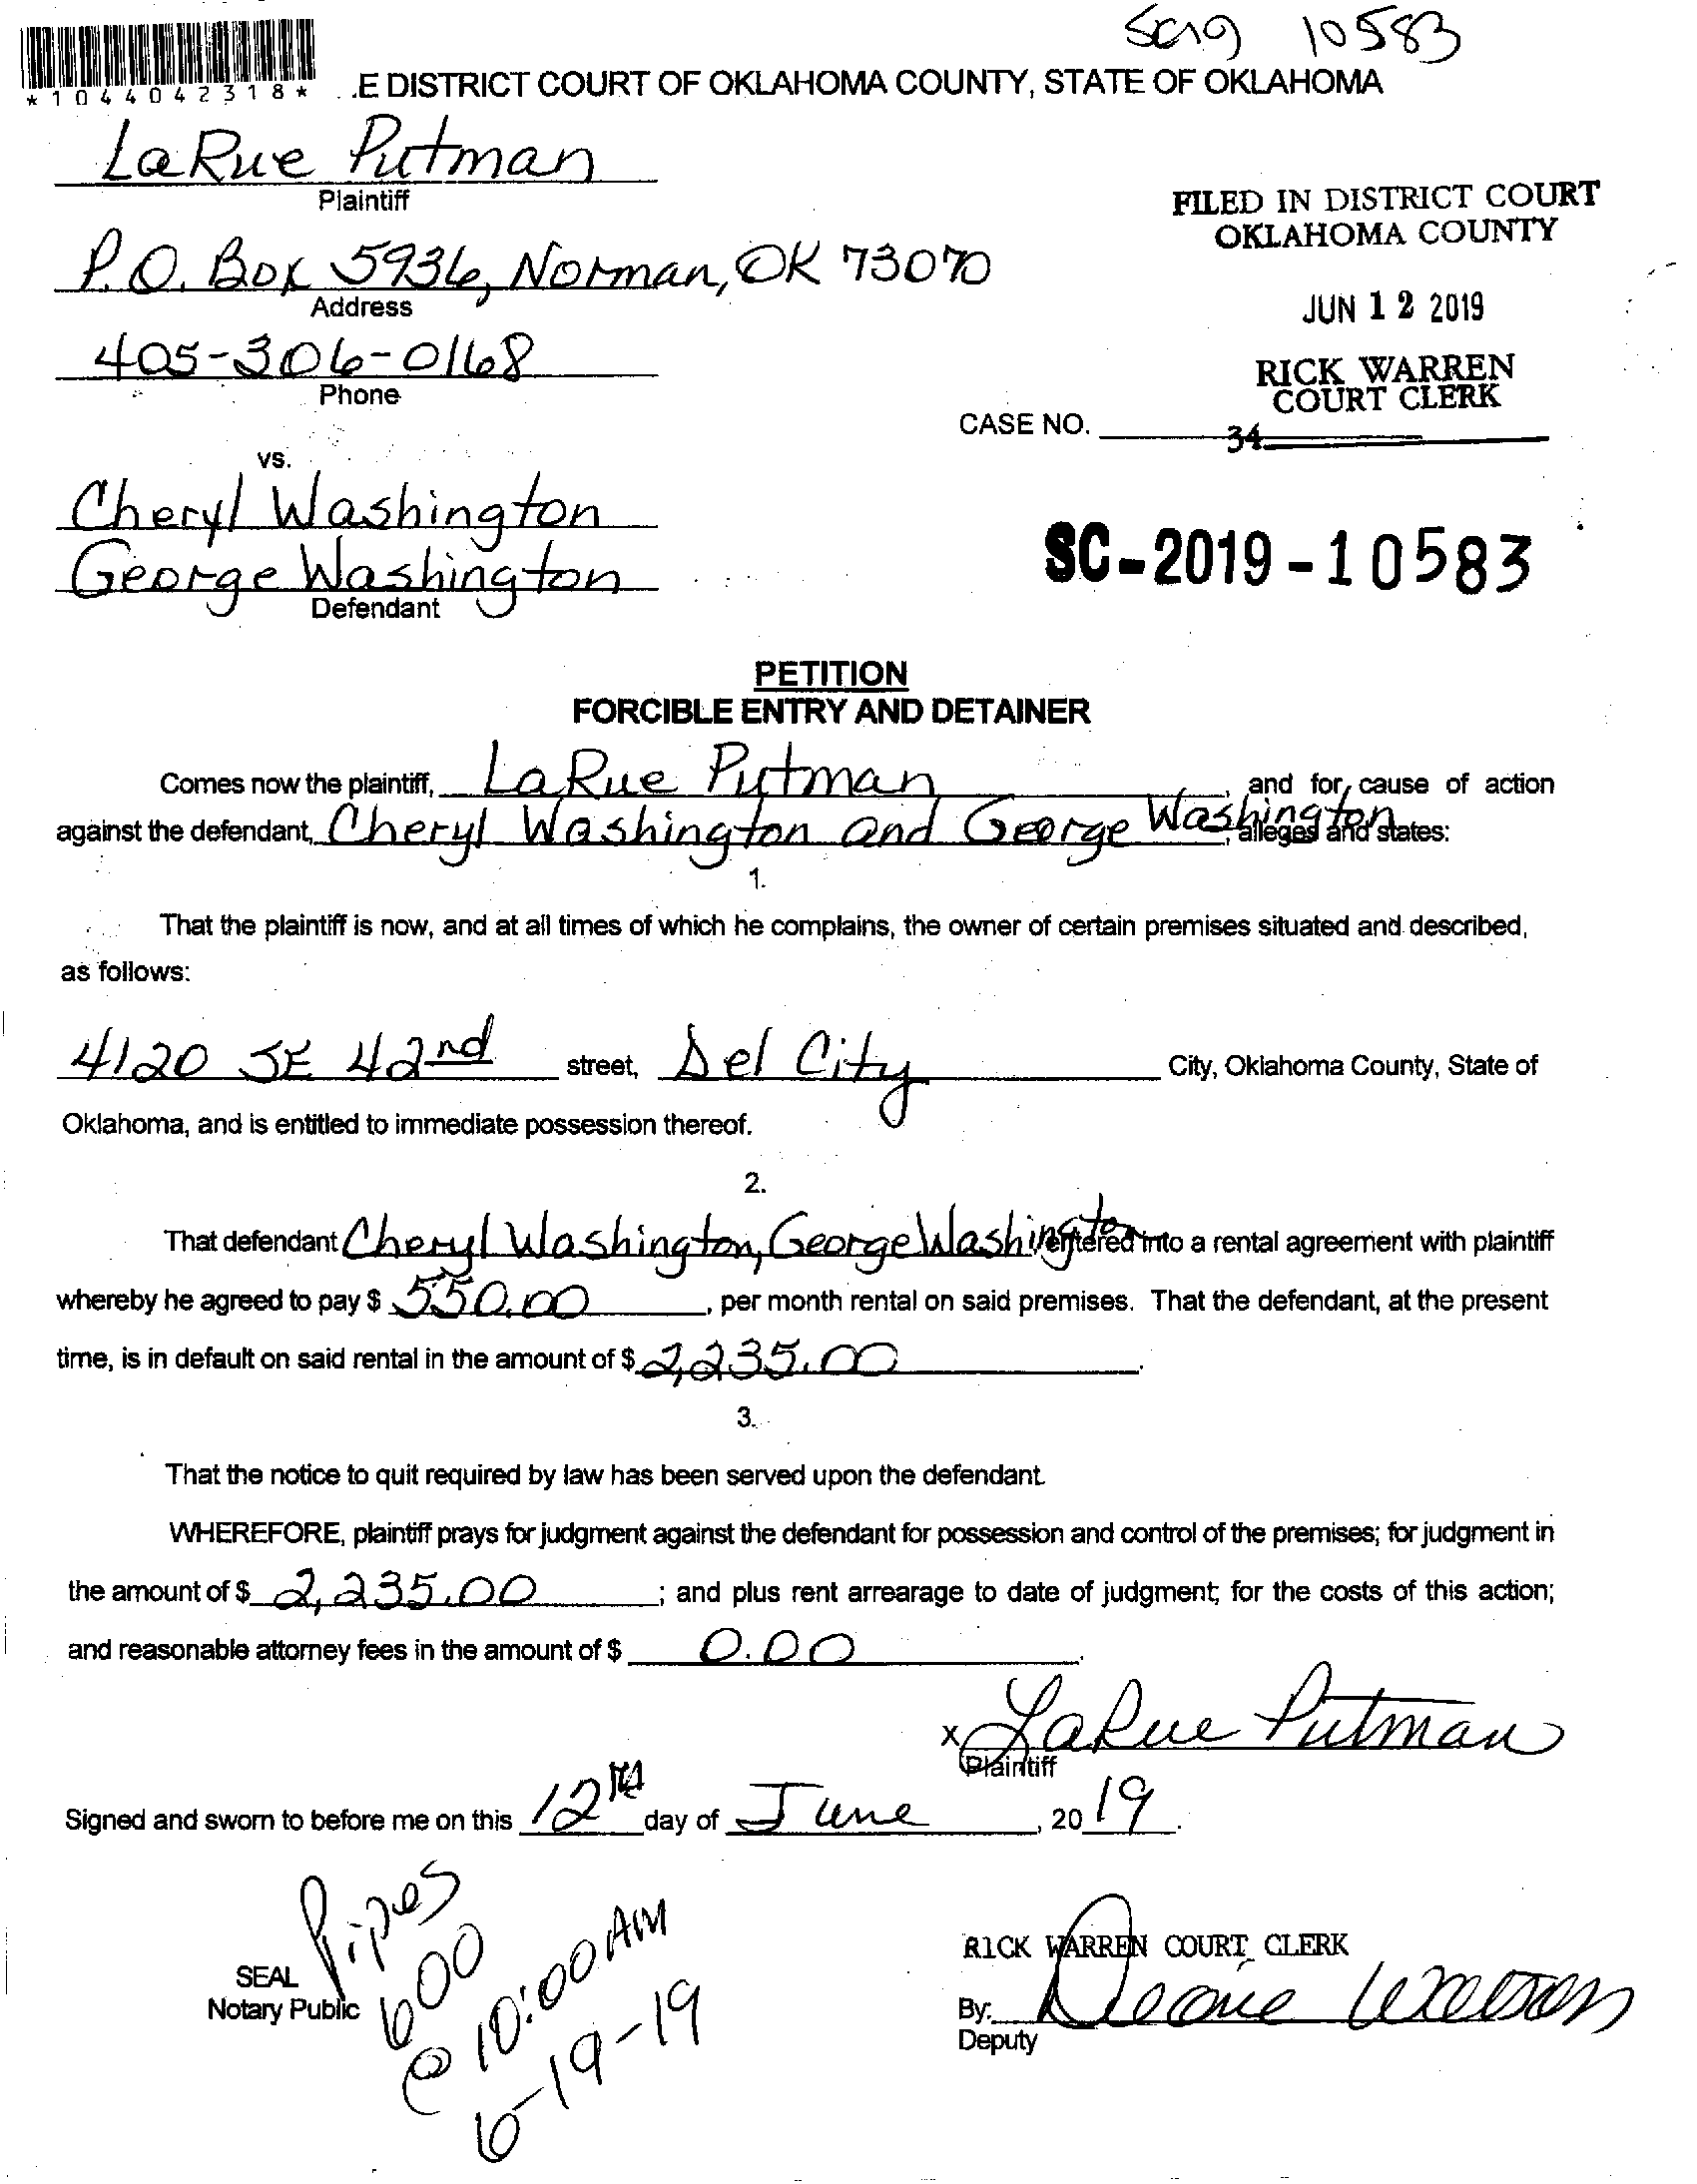 SC19 10583
*1044042318* .E DISTRICT COURT OF OKLAHOMA COUNTY, STATE OF OKLAHOMA
LaRue Putman
Plaintiff
P.O. Box 5936, Norman, OK 73070
Address
405-306-0168
Phone
FILED IN DISTRICT COURT
OKLAHOMA COUNTY
JUN 12 2019
RICK WARREN
COURT CLERK
CASE NO.
34
vs.
Cheryl Washington
George Washington
Defendant
SC-2019-10583
PETITION
FORCIBLE ENTRY AND DETAINER
Comes now the plaintiff, LaRue Putman, and for cause of action
against the defendant, Cheryl Washington and George Washington, alleges and states:
1.
That the plaintiff is now, and at all times of which he complains, the owner of certain premises situated and described,
as follows:
4120 SE 42nd street, Del City City, Oklahoma County, State of
Oklahoma, and is entitled to immediate possession thereof.
2.
That defendant Cheryl Washington, George Washington entered into a rental agreement with plaintiff
whereby he agreed to pay $ 550.00, per month rental on said premises. That the defendant, at the present
time, is in default on said rental in the amount of $ 2,235.00.
3.
That the notice to quit required by law has been served upon the defendant.
WHEREFORE, plaintiff prays for judgment against the defendant for possession and control of the premises; for judgment in
the amount of $ 2,235.00; and plus rent arrearage to date of judgment; for the costs of this action;
and reasonable attorney fees in the amount of $ 0.00.
x LaRue Putman
Plaintiff
Signed and sworn to before me on this 12th day of June, 2019.
SEAL
Notary Public
Pipes
600
@ 10:00 AM
6-19-19
RICK WARREN COURT CLERK
By:
Deputy